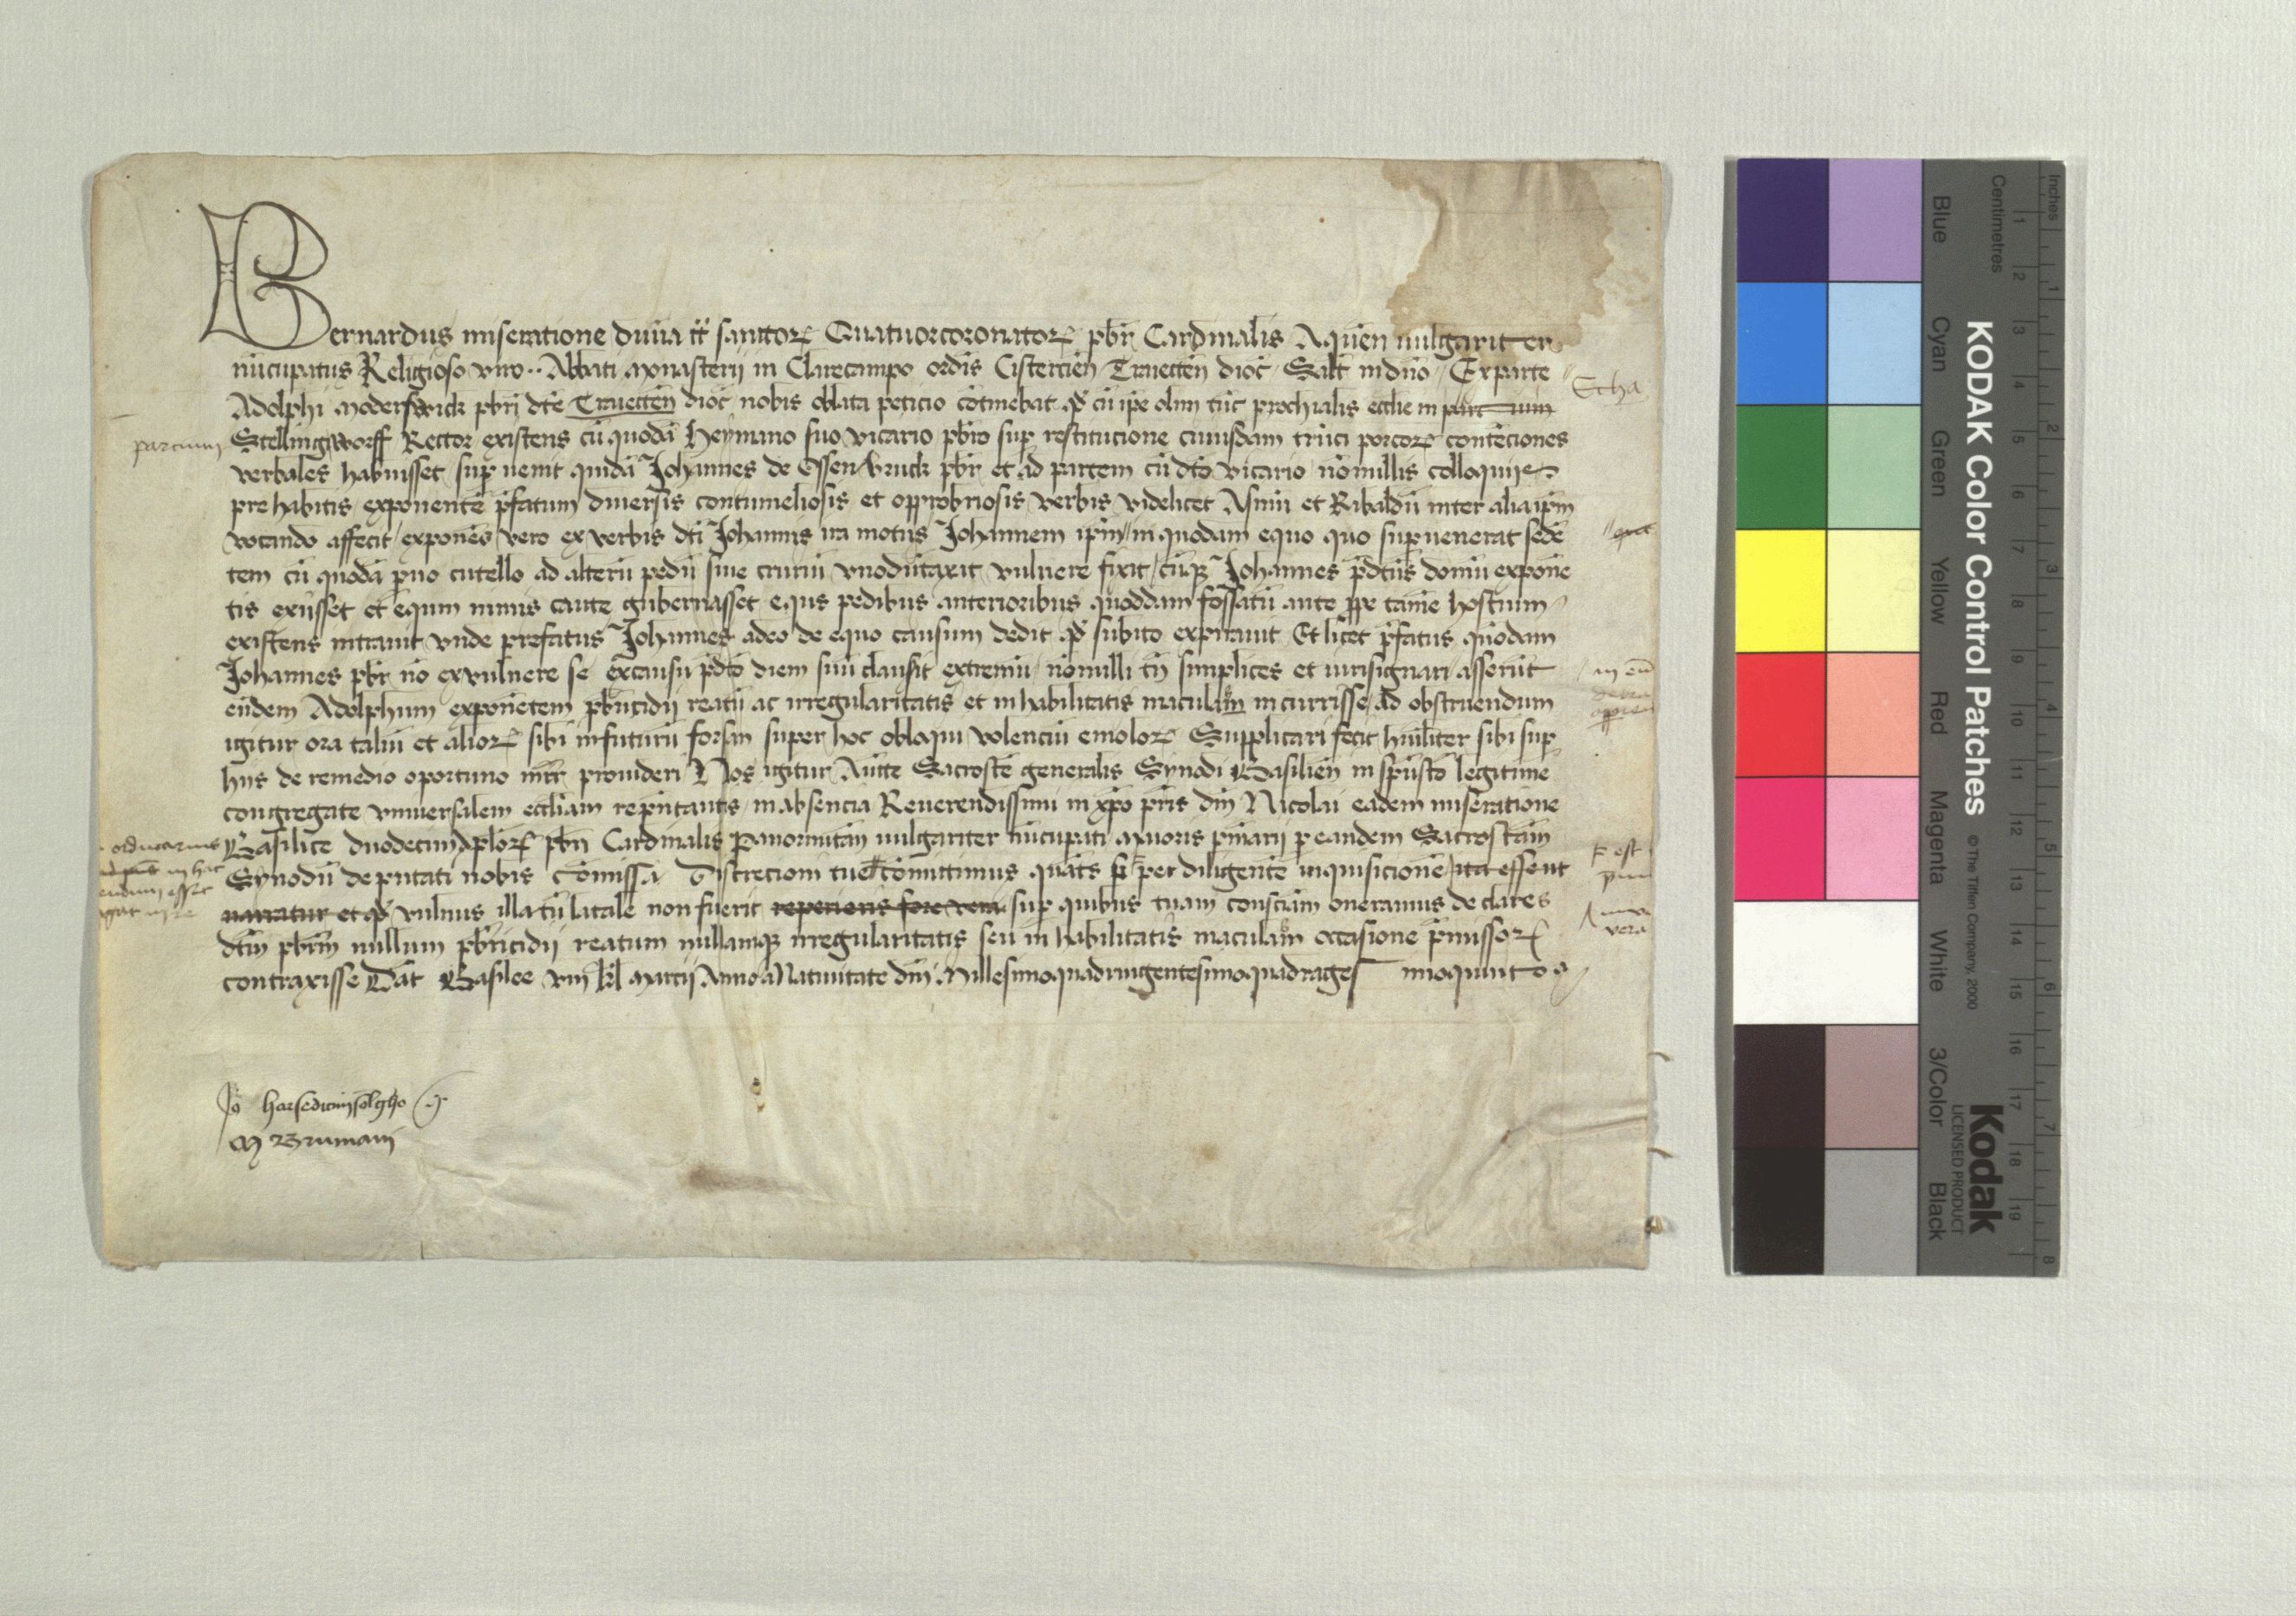 Bernardus miseratione divina tt sanctoꝝ Quatuorcoronatoꝝ pbr Cardinalis Aquen vulgariter
nūcupatus Religioso viro ·· Abbati monasterij in Clarecampo ordīs Cistercien̄ Traiecten̄ dioc̄ Salt̄ in dn̄o Ex parte
Adolphi Moderswick pbrj dc̄te Traiecten̄ dioc̄ nobis oblata peticio cōtinebat qd̄ cū ip̄e olim tūc prochialis ecclie in
Stellingworff Rector existens cū quodā Heymano suo vicario pbrō sup restitucione cuiusdam truci porcoꝝ contēciones
verbales habuisset sup uenit quidā Johannes de Ossenbruck pbr et ad partem cū dc̄to vicario nōnullis colloquijs
pre habitis exponentē p̄fatum diuersis contumeliosis et opprobriosis verbis videlicet Asinū et Ribaldū inter alia ip̄m
vocando affecit exponēs vero ex verbis dc̄ti Johannis ira motus Johannem ip̄m in quodam equo quo sup venerat sedē
tem cū quodā p̄uo cutello ad alterū pedū siue cruriū vnodūtaxat vulnere fixit cūqꝫ Johannes p̄dc̄tus domū exponē
tis exiisset et equm minus caute gubernasset equs pedibus anterioribus quoddam fossatū ante hostium
existens intrauit vnde prefatus Johannes adeo de equo causum dedit qd̄ subito expirauit Et licet p̄fatus quōdam
Johannes pbr nō ex vulnere se ex causu p̄dc̄to diem suū clausit extremū nōnulli tn̄ simplices et iurisignari asserūt
eūdem Adolphum exponētem pbricidij reatū ac irregularitatis et inhabilitatis maculam incurrisse ad obstruendum
igitur ora taliū et alioꝝ sibi in futurū forsan super hoc obloqui volenciū emoloꝝ Supplicari fecit humiliter sibi sup
hijs de remedio oportuno mīcr prouideri Nos igitur Auc̄te Sacroste generalis Synodi Basilien̄ in sp̄ūsto legitime
congregate vniuersalem eccliam rep̄ntantis in absencia Reuerendissimi in xp̄o pr̄is dn̄i Nicolai eadem miseratione
Basilice duodecim Aploꝝ pbrī Cardinalis Panormitan̄ vulgariter nūcupati maioris pn̄iarij p eandem Sacrostam
Synodū deputati nobis cōmissa Discrecioni tue cōmittimus quat̄s si per diligentē inquisicionē ita essent
narratur et qd̄ vulnus illatū letale non fuerit reperieris fore vera sup quibus tuam consciam oneramus declares
dc̄tm pbrm̄ nullum pbricidij reatum nullamqꝫ irregularitatis seu inhabilitatis maculam occasione p̄missoꝝ
contraxisse Dat̄ Basilee viij kl Marcij Anno a Natiuitate dn̄i Millesimoquadringentesimoquadrages imoquinto
partium
Jo
M Brumani
KODAK Color Control Patches
© The Tiffen Company, 2000
Kodak
LICENSED PRODUCT
Blue Cyan Green Yellow Red Magenta White 3/Color Black
Inches 1 2 3 4 5 6 7 8
Centimetres 1 2 3 4 5 6 7 8 9 10 11 12 13 14 15 16 17 18 19